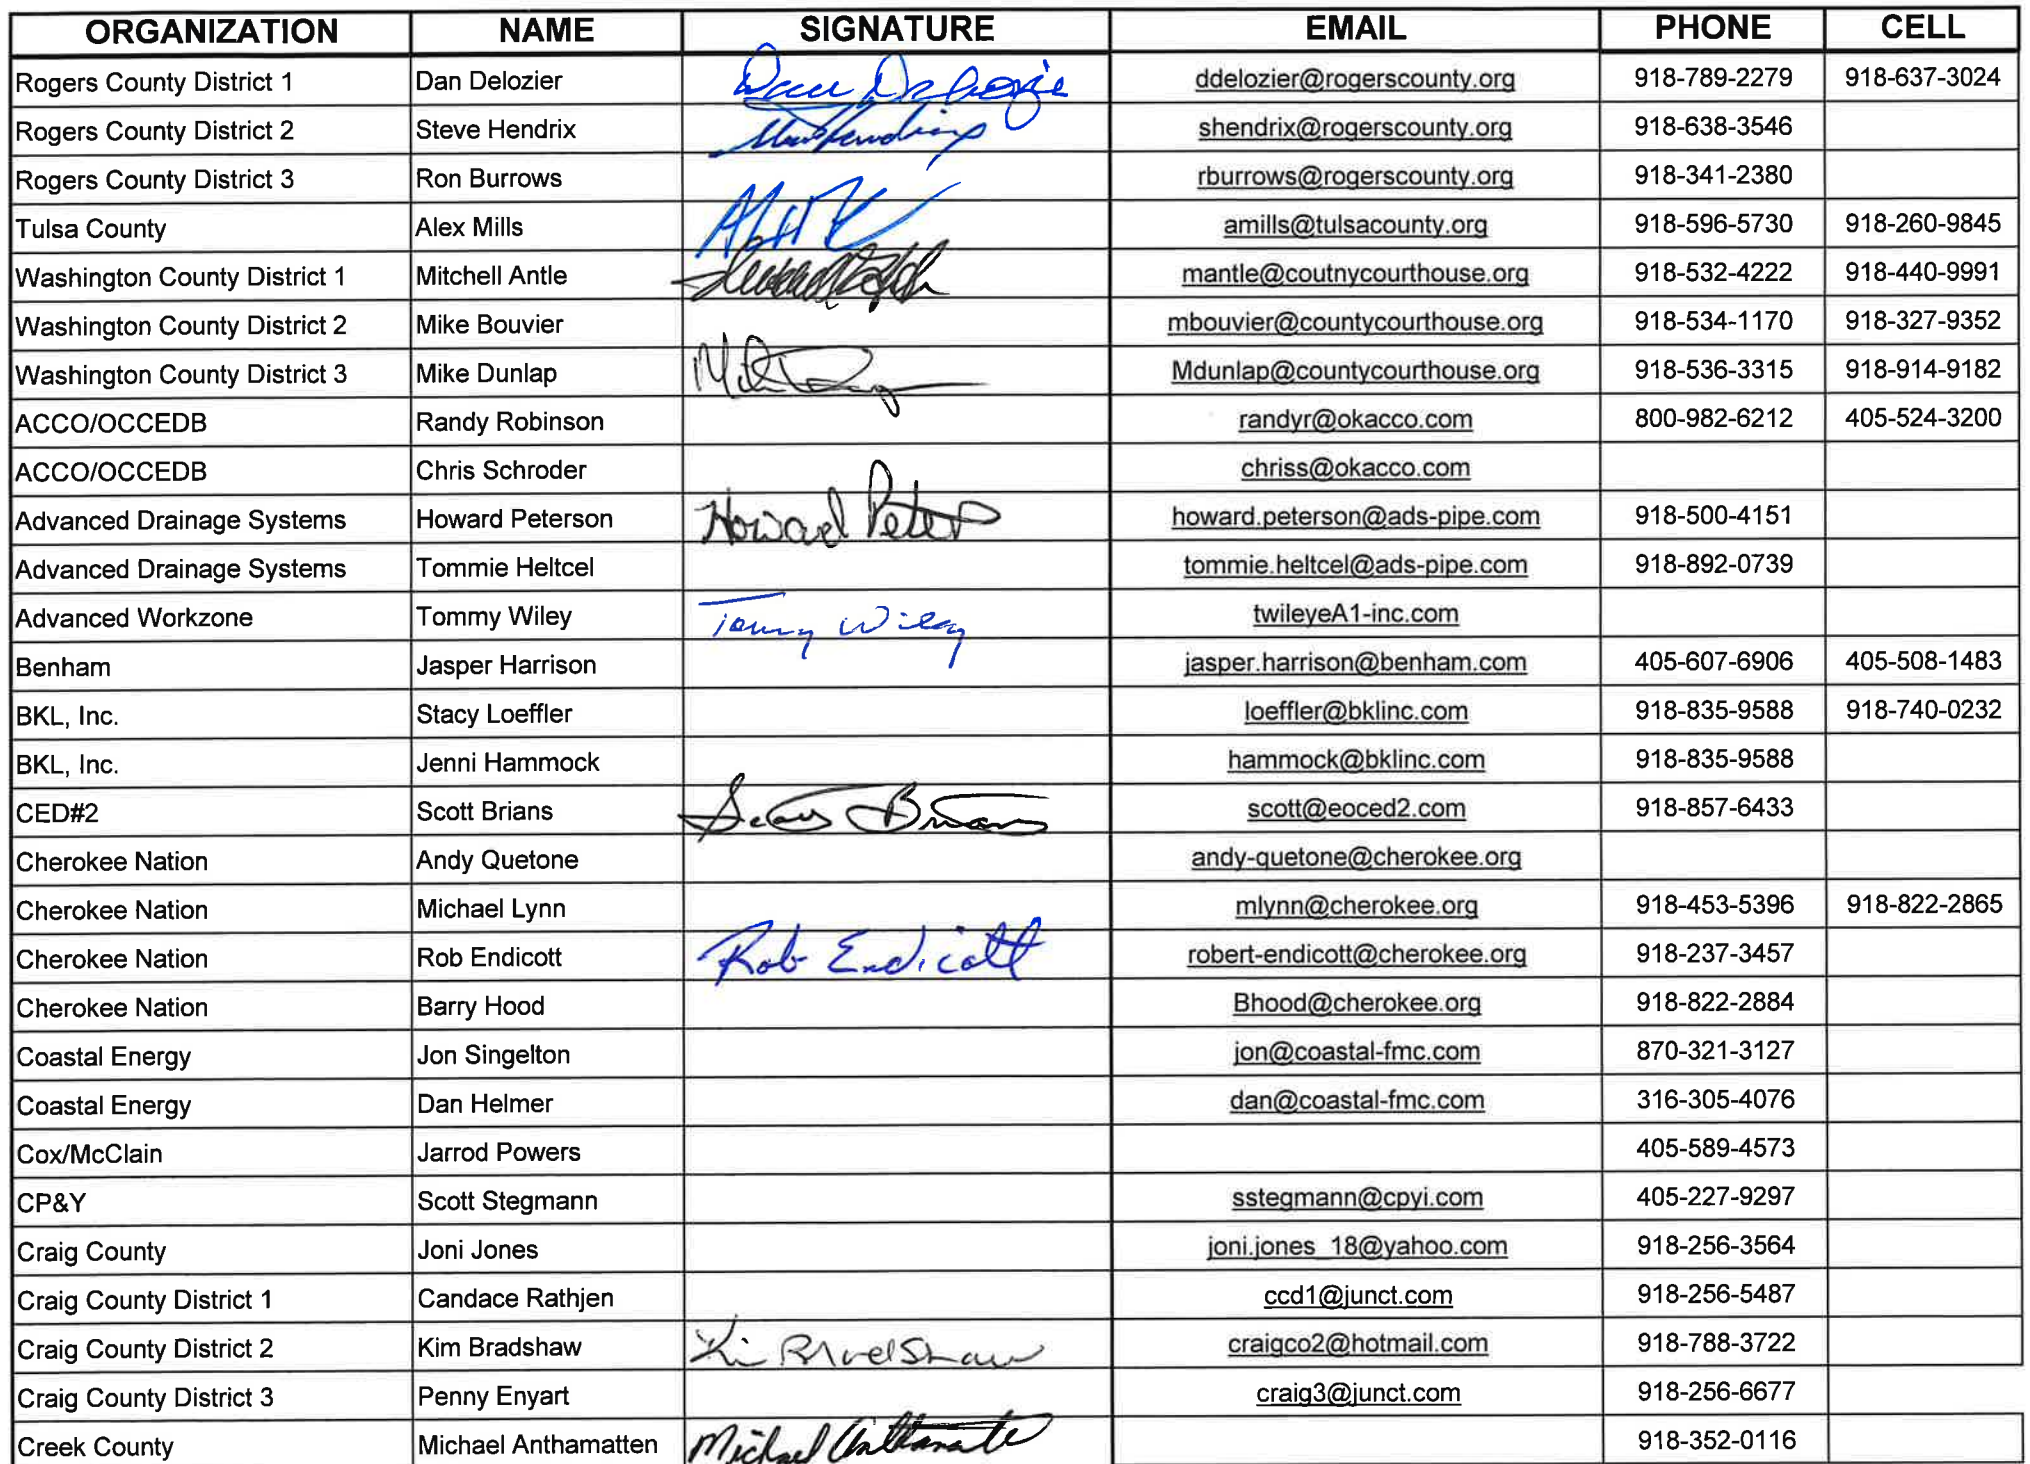 ORGANIZATION NAME SIGNATURE EMAIL PHONE CELL
Rogers County District 1 Dan Delozier ddelozier@rogerscounty.org 918-789-2279 918-637-3024
Rogers County District 2 Steve Hendrix shendrix@rogerscounty.org 918-638-3546
Rogers County District 3 Ron Burrows rburrows@rogerscounty.org 918-341-2380
Tulsa County Alex Mills amills@tulsacounty.org 918-596-5730 918-260-9845
Washington County District 1 Mitchell Antle mantle@coutnycourthouse.org 918-532-4222 918-440-9991
Washington County District 2 Mike Bouvier mbouvier@countycourthouse.org 918-534-1170 918-327-9352
Washington County District 3 Mike Dunlap Mdunlap@countycourthouse.org 918-536-3315 918-914-9182
ACCO/OCCEDB Randy Robinson randyr@okacco.com 800-982-6212 405-524-3200
ACCO/OCCEDB Chris Schroder chriss@okacco.com
Advanced Drainage Systems Howard Peterson Howard Peters howard.peterson@ads-pipe.com 918-500-4151
Advanced Drainage Systems Tommie Heltcel tommie.heltcel@ads-pipe.com 918-892-0739
Advanced Workzone Tommy Wiley Tommy Wiley twileyeA1-inc.com
Benham Jasper Harrison jasper.harrison@benham.com 405-607-6906 405-508-1483
BKL, Inc. Stacy Loeffler loeffler@bklinc.com 918-835-9588 918-740-0232
BKL, Inc. Jenni Hammock hammock@bklinc.com 918-835-9588
CED#2 Scott Brians Scott Brians scott@eoced2.com 918-857-6433
Cherokee Nation Andy Quetone andy-quetone@cherokee.org
Cherokee Nation Michael Lynn mlynn@cherokee.org 918-453-5396 918-822-2865
Cherokee Nation Rob Endicott Rob Endicott robert-endicott@cherokee.org 918-237-3457
Cherokee Nation Barry Hood Bhood@cherokee.org 918-822-2884
Coastal Energy Jon Singelton jon@coastal-fmc.com 870-321-3127
Coastal Energy Dan Helmer dan@coastal-fmc.com 316-305-4076
Cox/McClain Jarrod Powers 405-589-4573
CP&Y Scott Stegmann sstegmann@cpyi.com 405-227-9297
Craig County Joni Jones joni.jones_18@yahoo.com 918-256-3564
Craig County District 1 Candace Rathjen ccd1@junct.com 918-256-5487
Craig County District 2 Kim Bradshaw Kim Bradshaw craigco2@hotmail.com 918-788-3722
Craig County District 3 Penny Enyart craig3@junct.com 918-256-6677
Creek County Michael Anthamatten Michael Anthamatten 918-352-0116